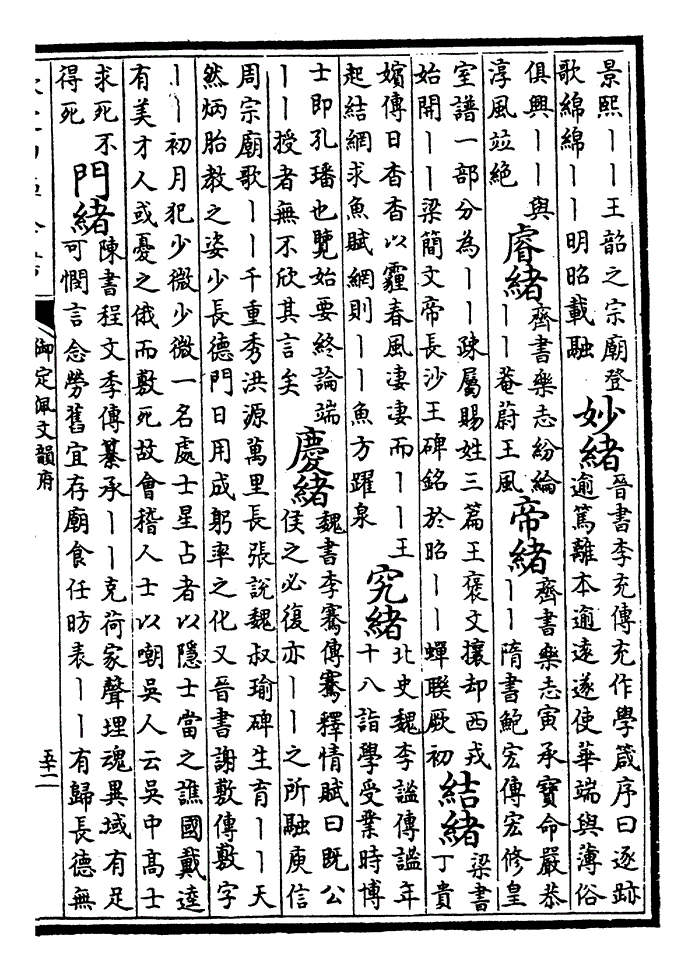 景熙丨丨王韶之宗廟登
歌綿綿丨丨明昭載融
妙緒
晉書李充傳充作學箴序曰逐跡
逾篤離本逾遠遂使華端與薄俗
俱興丨丨與
淳風竝絶
睿緒
齊書樂志紛綸
丨丨菴蔚王風
帝緒
齊書樂志寅承寶命嚴恭
丨丨隋書鮑宏傳宏修皇
室譜一部分為丨丨疎屬賜姓三篇王褒文攘却西戎
始開丨丨梁簡文帝長沙王碑銘於昭丨丨蟬聯厥初
結緒
梁書
丁貴
嬪傳日杳杳以霾春風凄凄而丨丨王
起結網求魚賦網則丨丨魚方躍泉
究緒
北史魏李謐傳謐年
十八詣學受業時博
士即孔璠也覽始要終論端
丨丨授者無不欣其言矣
慶緒
魏書李騫傳騫釋情賦曰既公
侯之必復亦丨丨之所融庾信
周宗廟歌丨丨千重秀洪源萬里長張說魏叔瑜碑生育丨丨天
然炳胎教之姿少長德門日用成躬率之化又晉書謝敷傳敷字
丨丨初月犯少微少微一名處士星占者以隱士當之譙國戴逵
有美才人或憂之俄而敷死故會稽人士以嘲吳人云吳中高士
求死不
得死
門緒
陳書程文季傳纂承丨丨克荷家聲埋魂異域有足
可憫言念勞舊宜存廟食任昉表丨丨有歸長德無
御定佩文韻府